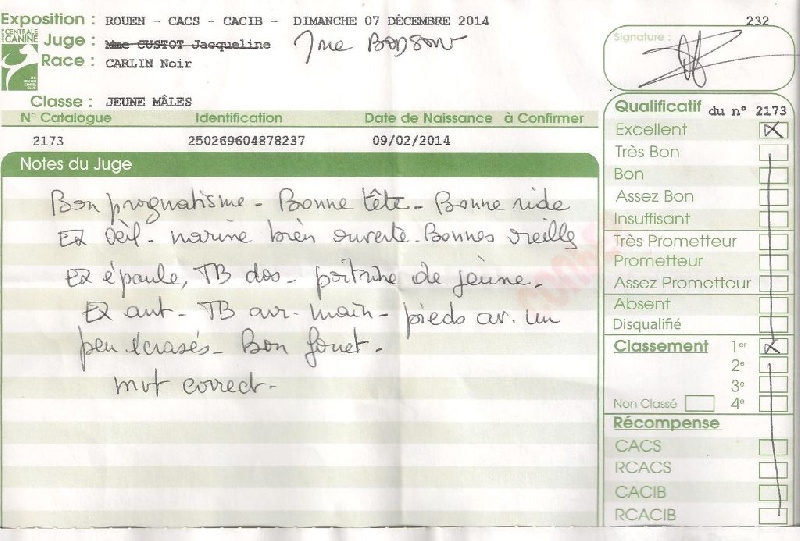 Exposition : ROUEN - CACS - CACIB - DIMANCHE 07 DÉCEMBRE 2014
232
CENTRALE CANINE
Juge : Mme CUSTOT Jacqueline
Race : CARLIN Noir
Signature :
Classe : JEUNE MÂLES
N° Catalogue Identification Date de Naissance à Confirmer
2173 250269604878237 09/02/2014
Notes du Juge
Bon prognatisme - Bonne tête - Bonne ride
Ex oeil - narine bien ouverte - Bonnes oreilles
Ex épaule, TB dos - poitrine de jeune -
Ex ant - TB av - main - pieds av. un
peu écrasés - Bon fouet -
mvt correct -
Qualificatif du n° 2173
Excellent
Très Bon
Bon
Assez Bon
Insuffisant
Très Prometteur
Prometteur
Assez Prometteur
Absent
Disqualifié
Classement 1er
2e
3e
Non Classé 4e
Récompense
CACS
RCACS
CACIB
RCACIB